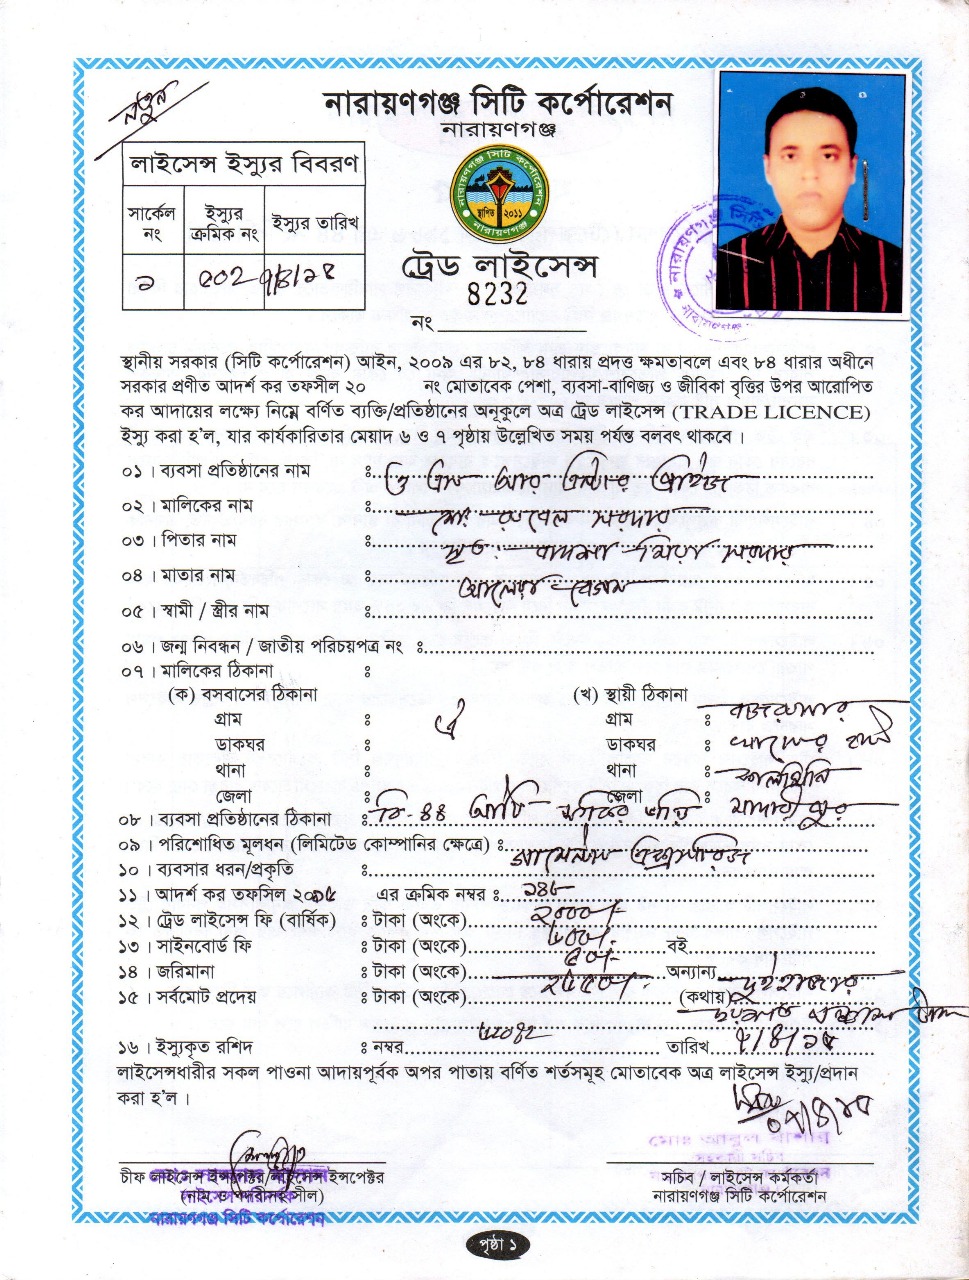 নতুন
নারায়ণগঞ্জ সিটি কর্পোরেশন
নারায়ণগঞ্জ
লাইসেন্স ইস্যুর বিবরণ
সার্কেল নং
ইস্যুর ক্রমিক নং
ইস্যুর তারিখ
১
৫০২
৭/৪/১৫
নারায়ণগঞ্জ সিটি কর্পোরেশন
স্থাপিত ২০১১
নারায়ণগঞ্জ
ট্রেড লাইসেন্স
8232
নং
স্থানীয় সরকার (সিটি কর্পোরেশন) আইন, ২০০৯ এর ৮২, ৮৪ ধারায় প্রদত্ত ক্ষমতাবলে এবং ৮৪ ধারার অধীনে
সরকার প্রণীত আদর্শ কর তফসীল ২০ নং মোতাবেক পেশা, ব্যবসা-বাণিজ্য ও জীবিকা বৃত্তির উপর আরোপিত
কর আদায়ের লক্ষ্যে নিম্নে বর্ণিত ব্যক্তি/প্রতিষ্ঠানের অনূকুলে অত্র ট্রেড লাইসেন্স (TRADE LICENCE)
ইস্যু করা হ'ল, যার কার্যকারিতার মেয়াদ ৬ ও ৭ পৃষ্ঠায় উল্লেখিত সময় পর্যন্ত বলবৎ থাকবে।
০১। ব্যবসা প্রতিষ্ঠানের নাম ঃ এস আর এন্টার প্রাইজ
০২। মালিকের নাম ঃ মোঃ রুবেল সরদার
০৩। পিতার নাম ঃ মৃত: বাদশা মিয়া সরদার
০৪। মাতার নাম ঃ আলেয়া বেগম
০৫। স্বামী / স্ত্রীর নাম ঃ
০৬। জন্ম নিবন্ধন / জাতীয় পরিচয়পত্র নং ঃ
০৭। মালিকের ঠিকানা ঃ
(ক) বসবাসের ঠিকানা (খ) স্থায়ী ঠিকানা
গ্রাম ঃ ঐ গ্রাম ঃ
ডাকঘর ঃ ডাকঘর ঃ
থানা ঃ থানা ঃ কালকিনি
জেলা ঃ জেলা ঃ মাদারীপুর
০৮। ব্যবসা প্রতিষ্ঠানের ঠিকানা ঃ বি-৪৪
০৯। পরিশোধিত মূলধন (লিমিটেড কোম্পানির ক্ষেত্রে) ঃ
১০। ব্যবসার ধরন/প্রকৃতি ঃ
১১। আদর্শ কর তফসিল ২০১৫ এর ক্রমিক নম্বর ঃ ১৪৮
১২। ট্রেড লাইসেন্স ফি (বার্ষিক) ঃ টাকা (অংকে) ২০০০/-
১৩। সাইনবোর্ড ফি ঃ টাকা (অংকে) ৬০০/- বই
১৪। জরিমানা ঃ টাকা (অংকে) ৫০/- অন্যান্য
১৫। সর্বমোট প্রদেয় ঃ টাকা (অংকে) ২৬৫০/- (কথায়) দুই হাজার
ছয়শত পঞ্চাশ টাকা
১৬। ইস্যুকৃত রশিদ ঃ নম্বর ৬২০৪২ তারিখ ৭/৪/১৫
লাইসেন্সধারীর সকল পাওনা আদায়পূর্বক অপর পাতায় বর্ণিত শর্তসমূহ মোতাবেক অত্র লাইসেন্স ইস্যু/প্রদান
করা হ'ল।
০৭/৪/১৫
চীফ লাইসেন্স ইন্সপেক্টর/লাইসেন্স ইন্সপেক্টর
(নাম ও পদবীসহ সীল)
নারায়ণগঞ্জ সিটি কর্পোরেশন
সচিব / লাইসেন্স কর্মকর্তা
নারায়ণগঞ্জ সিটি কর্পোরেশন
পৃষ্ঠা ১